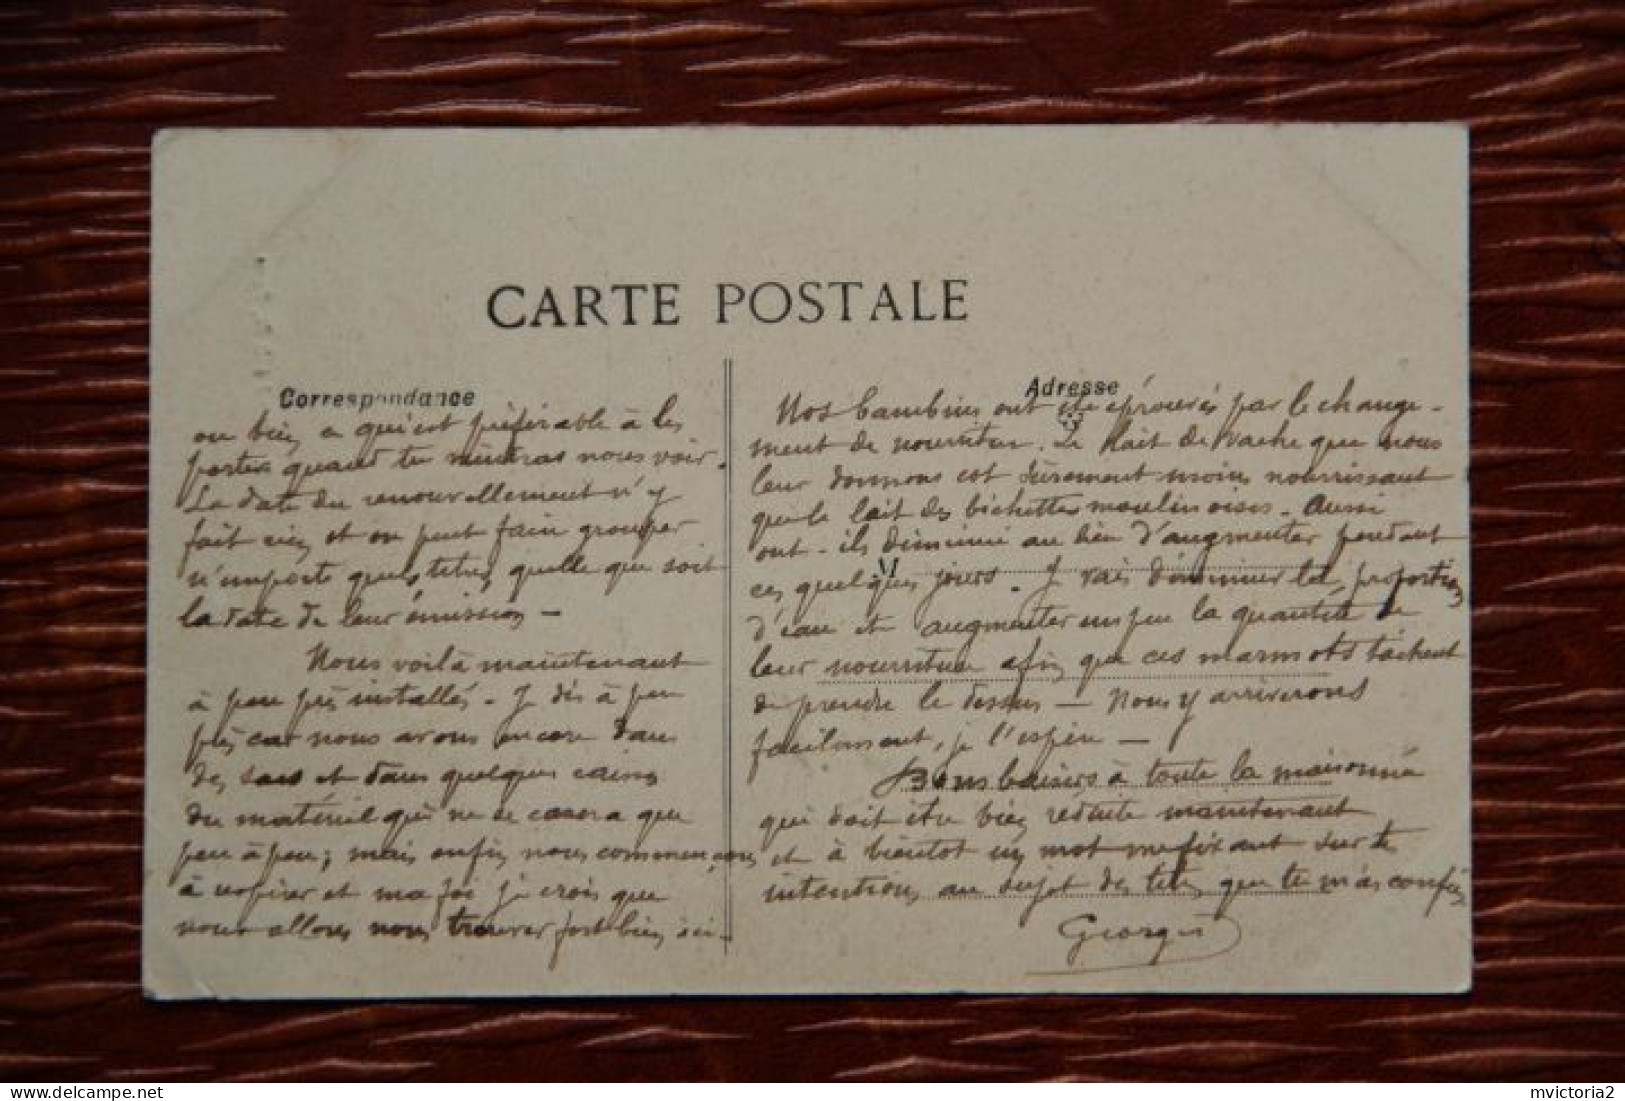 CARTE POSTALE
Correspondance
ou bien a qu'est préférable à les
porter quand tu viendras nous voir.
La date du renouvellement n'y
fait rien et on peut faire grouper
n'importe quels titres quelle que soit
la date de leur émission –
Nous voilà maintenant
à peu près installés. Je dis à peu
près car nous avons encore dans
des sacs et dans quelques caisses
du matériel qui ne se casera que
peu à peu; mais enfin nous commençons
à respirer et ma foi je crois que
nous allons nous trouver fort bien ici.
Adresse
Nos bambins ont été éprouvés par le change-
ment de nourriture. Le lait de vache que nous
leur donnons est sûrement moins nourrissant
que le lait des bichettes moulinoises. Aussi
ont-ils diminué au lieu d'augmenter pendant
ces quelques jours. Je vais diminuer la proportion
d'eau et augmenter un peu la quantité de
leur nourriture afin que ces marmots tâchent
de prendre le dessus — Nous y arriverons
facilement, je l'espère —
Bons baisers à toute la maisonnée
qui doit être bien réduite maintenant
et à bientôt un mot me fixant sur tes
intentions au sujet des titres que tu m'as confiés
Georges
mvictoria2